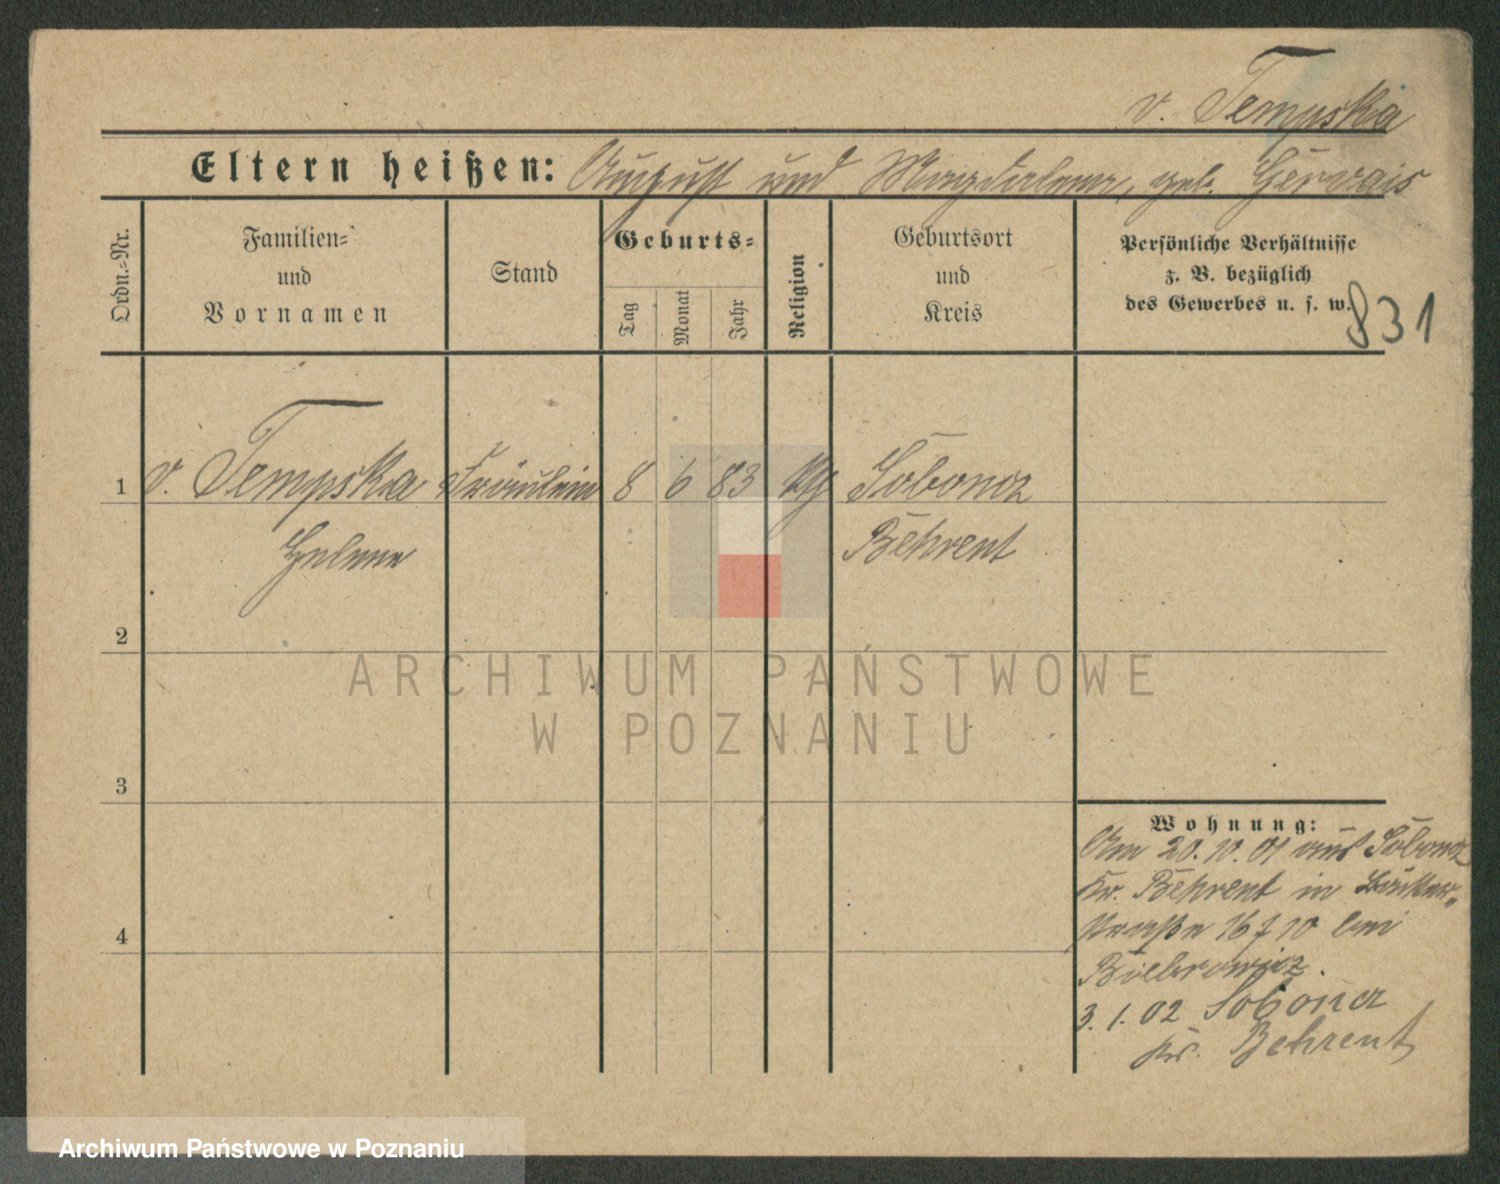 v. Tempska
Eltern heißen: August und Magdalena, geb. Gervais
Ordn.=Nr.
Familien=
und
Vornamen
Stand
Geburts=
Tag
Monat
Jahr
Religion
Geburtsort
und
Kreis
Persönliche Verhältnisse
z. B. bezüglich
des Gewerbes u. s. w.
831
1 v. Tempska Fräulein 8 6 83 Soboncz
Helene Behrent
2
3
4
ARCHIWUM PAŃSTWOWE
W POZNANIU
Wohnung:
Am 20.10.01 aus Soboncz
Kr. Behrent in
straße 16 I 10 bei
3.1.02 Soboncz
Kr. Behrent
Archiwum Państwowe w Poznaniu